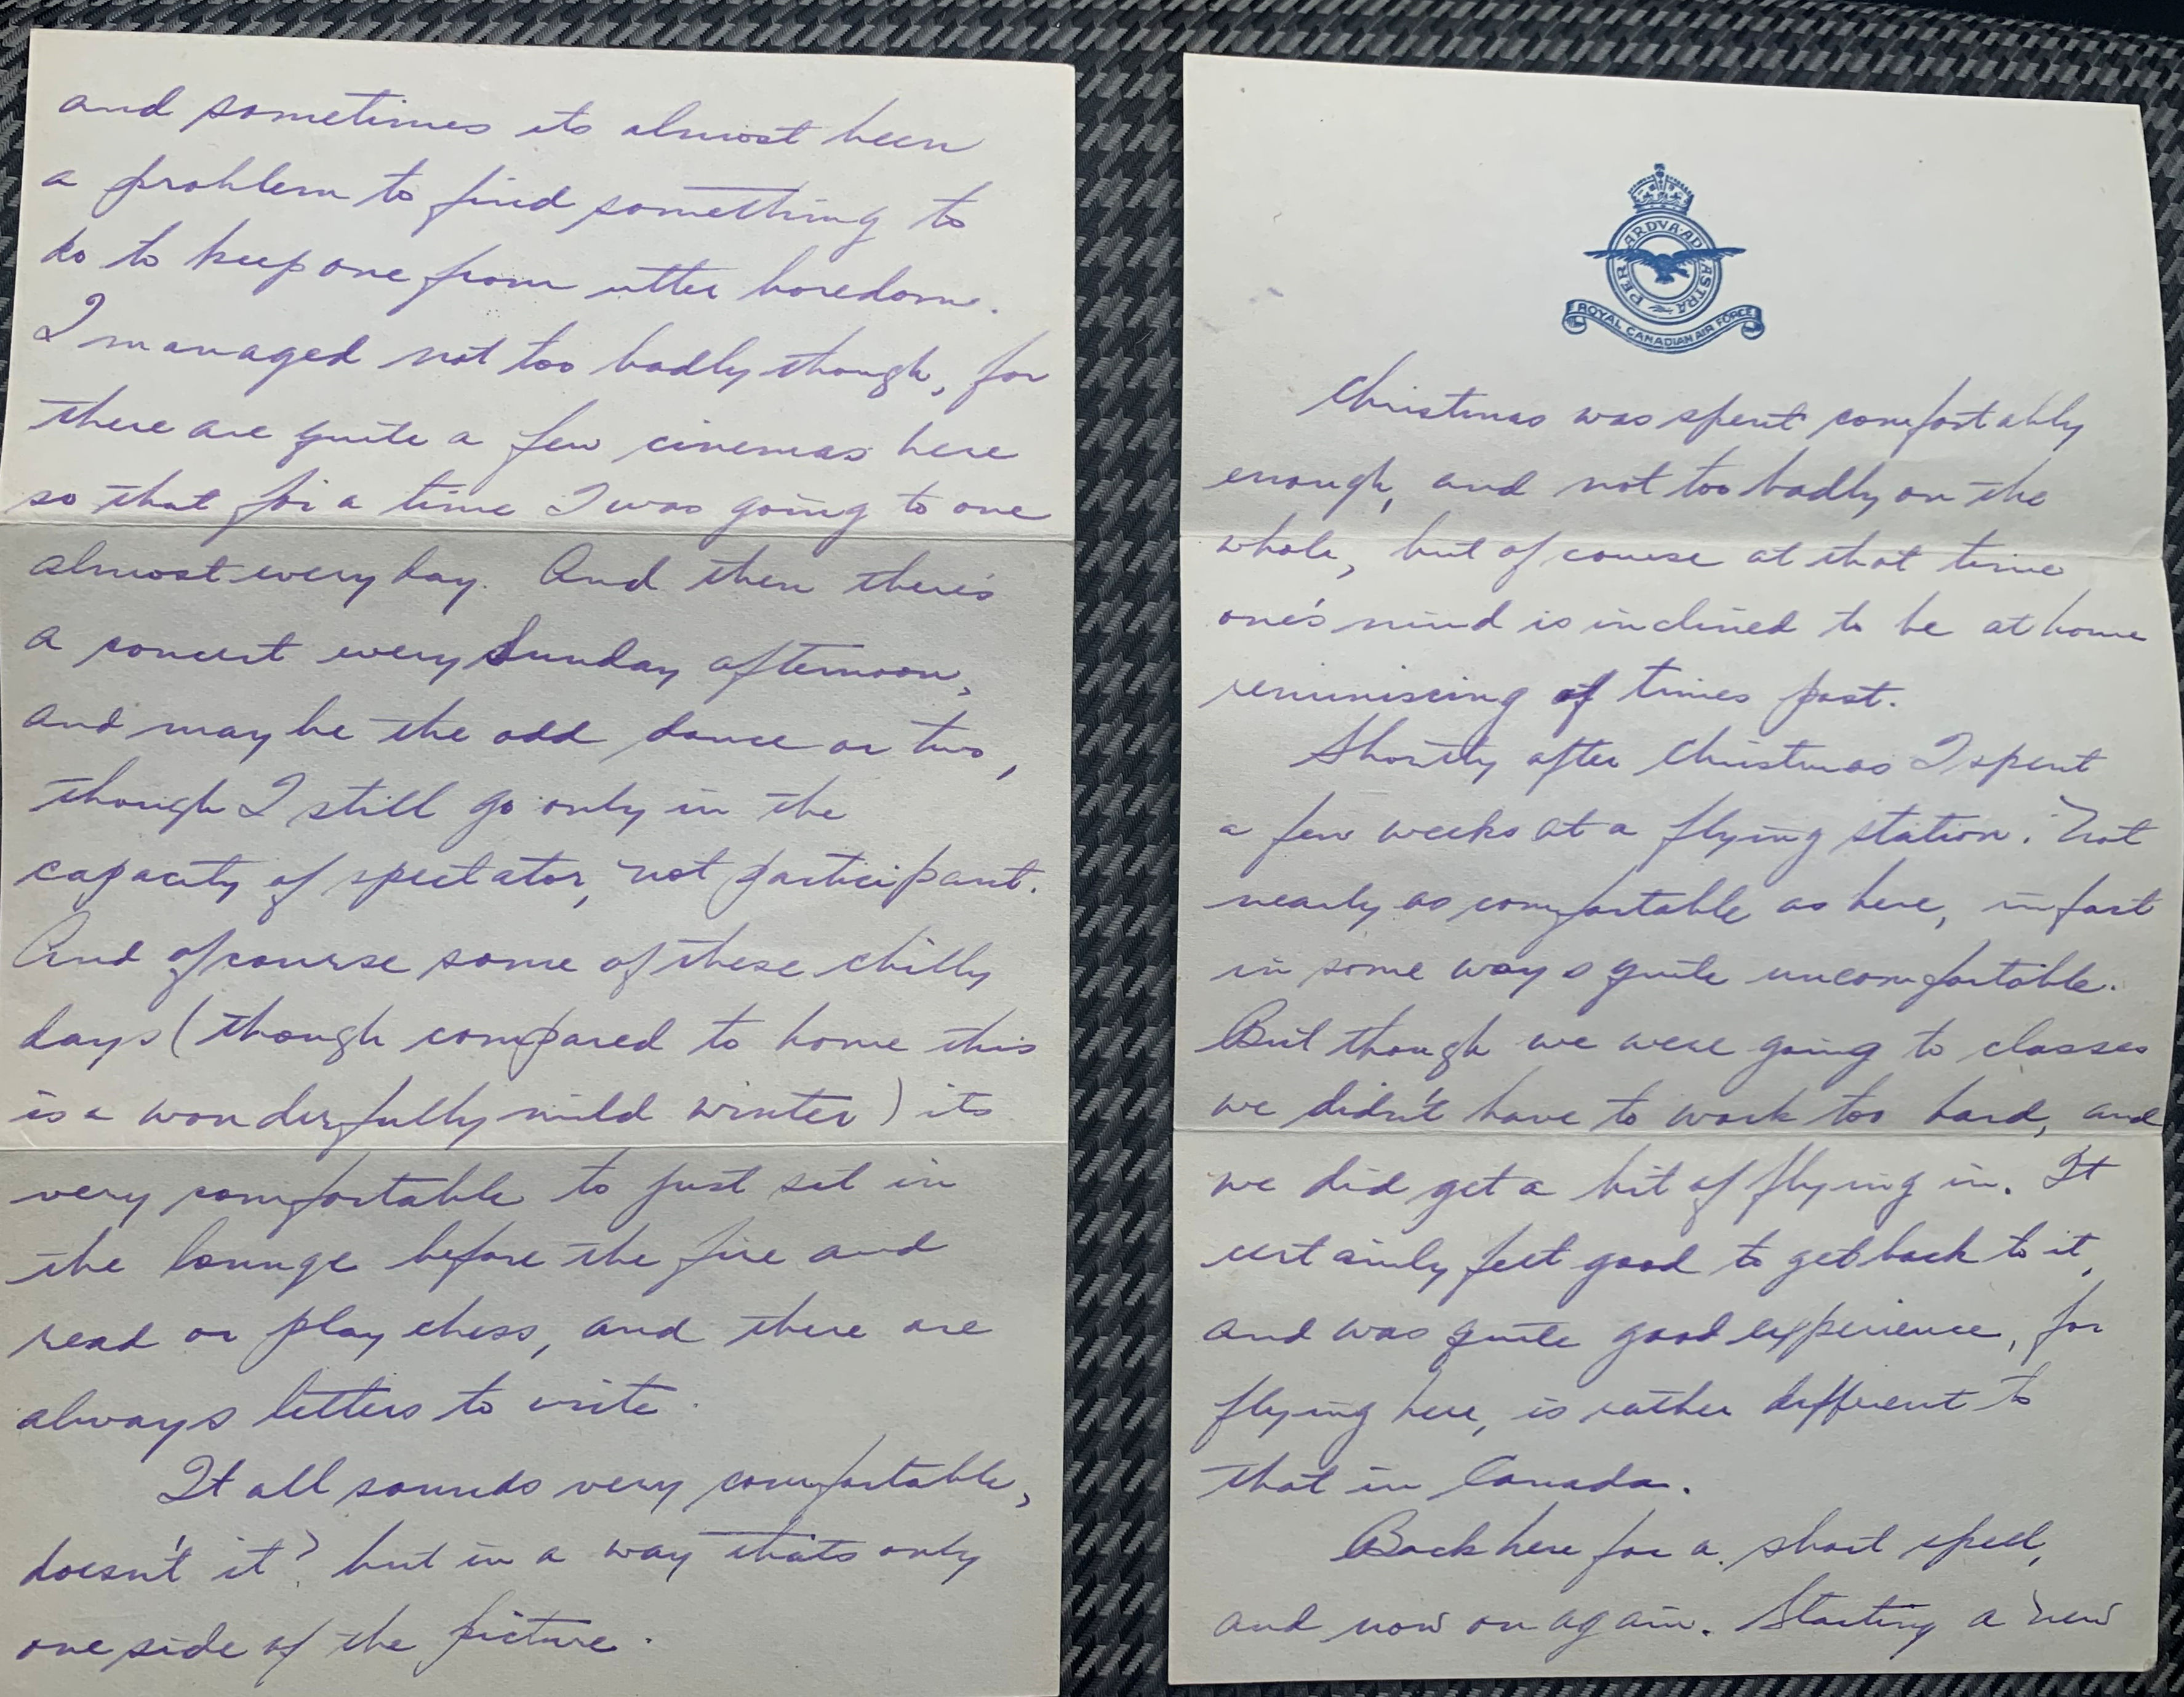 and sometimes its almost been
a problem to find something to
do to keep one from utter boredom.
I managed not too badly though, for
there are quite a few cinemas here
so that for a time I was going to one
almost every day. And then there's
a concert every Sunday afternoon,
and maybe the odd dance or two,
though I still go only in the
capacity of spectator, not participant.
And of course some of these chilly
days (though compared to home this
is a wonderfully mild winter) its
very comfortable to just sit in
the lounge before the fire and
read or play chess, and there are
always letters to write.
It all sounds very comfortable,
doesn't it? but in a way thats only
one side of the picture.
PER ARDVA AD ASTRA
ROYAL CANADIAN AIR FORCE
Christmas was spent comfortably
enough, and not too badly on the
whole, but of course at that time
one's mind is inclined to be at home
reminiscing of times past.
Shortly after Christmas I spent
a few weeks at a flying station. Not
nearly as comfortable as here, in fact
in some ways quite uncomfortable.
But though we were going to classes
we didn't have to work too hard, and
we did get a bit of flying in. It
certainly felt good to get back to it,
and was quite good experience, for
flying here, is rather different to
that in Canada.
Back here for a short spell,
and now on again. Starting a new